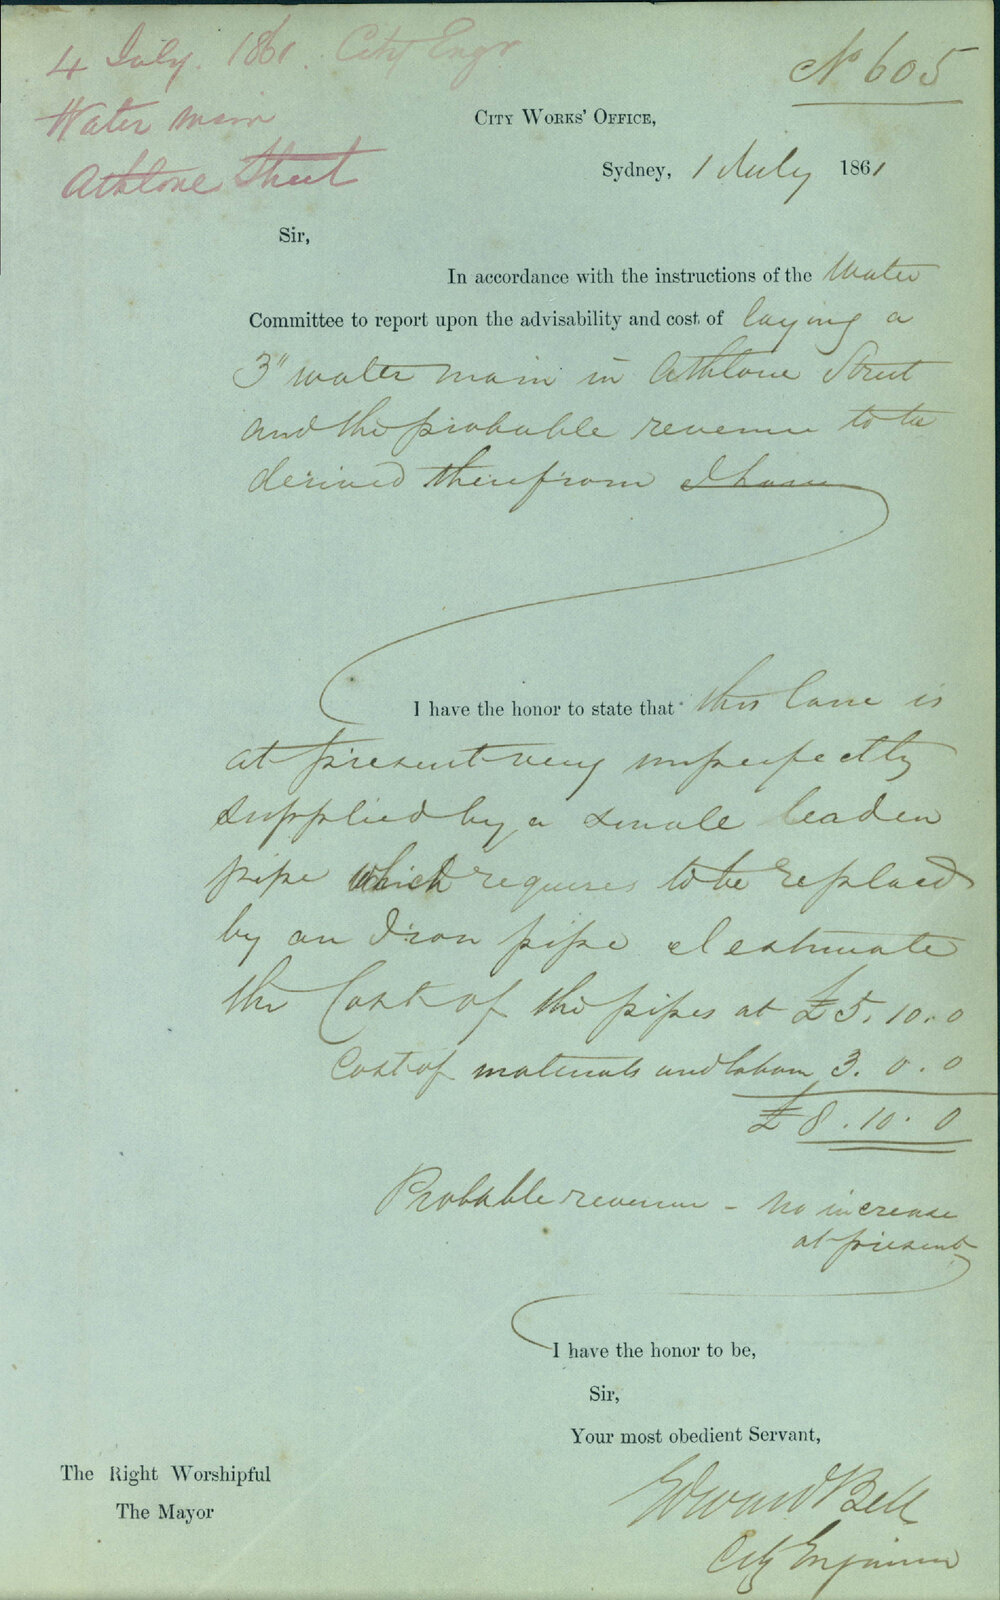 4 July. 1861. City Engr
Water main
Athlone Street
No 605
CITY WORKS' OFFICE,
Sydney, 1 July 1861
Sir,
In accordance with the instructions of the Water
Committee to report upon the advisability and cost of laying a
3" water main in Athlone Street
and the probable revenue to be
derived therefrom I have
I have the honor to state that this lane is
at present very imperfectly
supplied by a single leaden
pipe which requires to be replaced
by an Iron pipe I estimate
the Cost of the pipes at £5.10.0
Cost of materials and labour 3.0.0
£8.10.0
Probable revenue - No increase
at present
I have the honor to be,
Sir,
Your most obedient Servant,
Edward Bell
City Engineer
The Right Worshipful
The Mayor